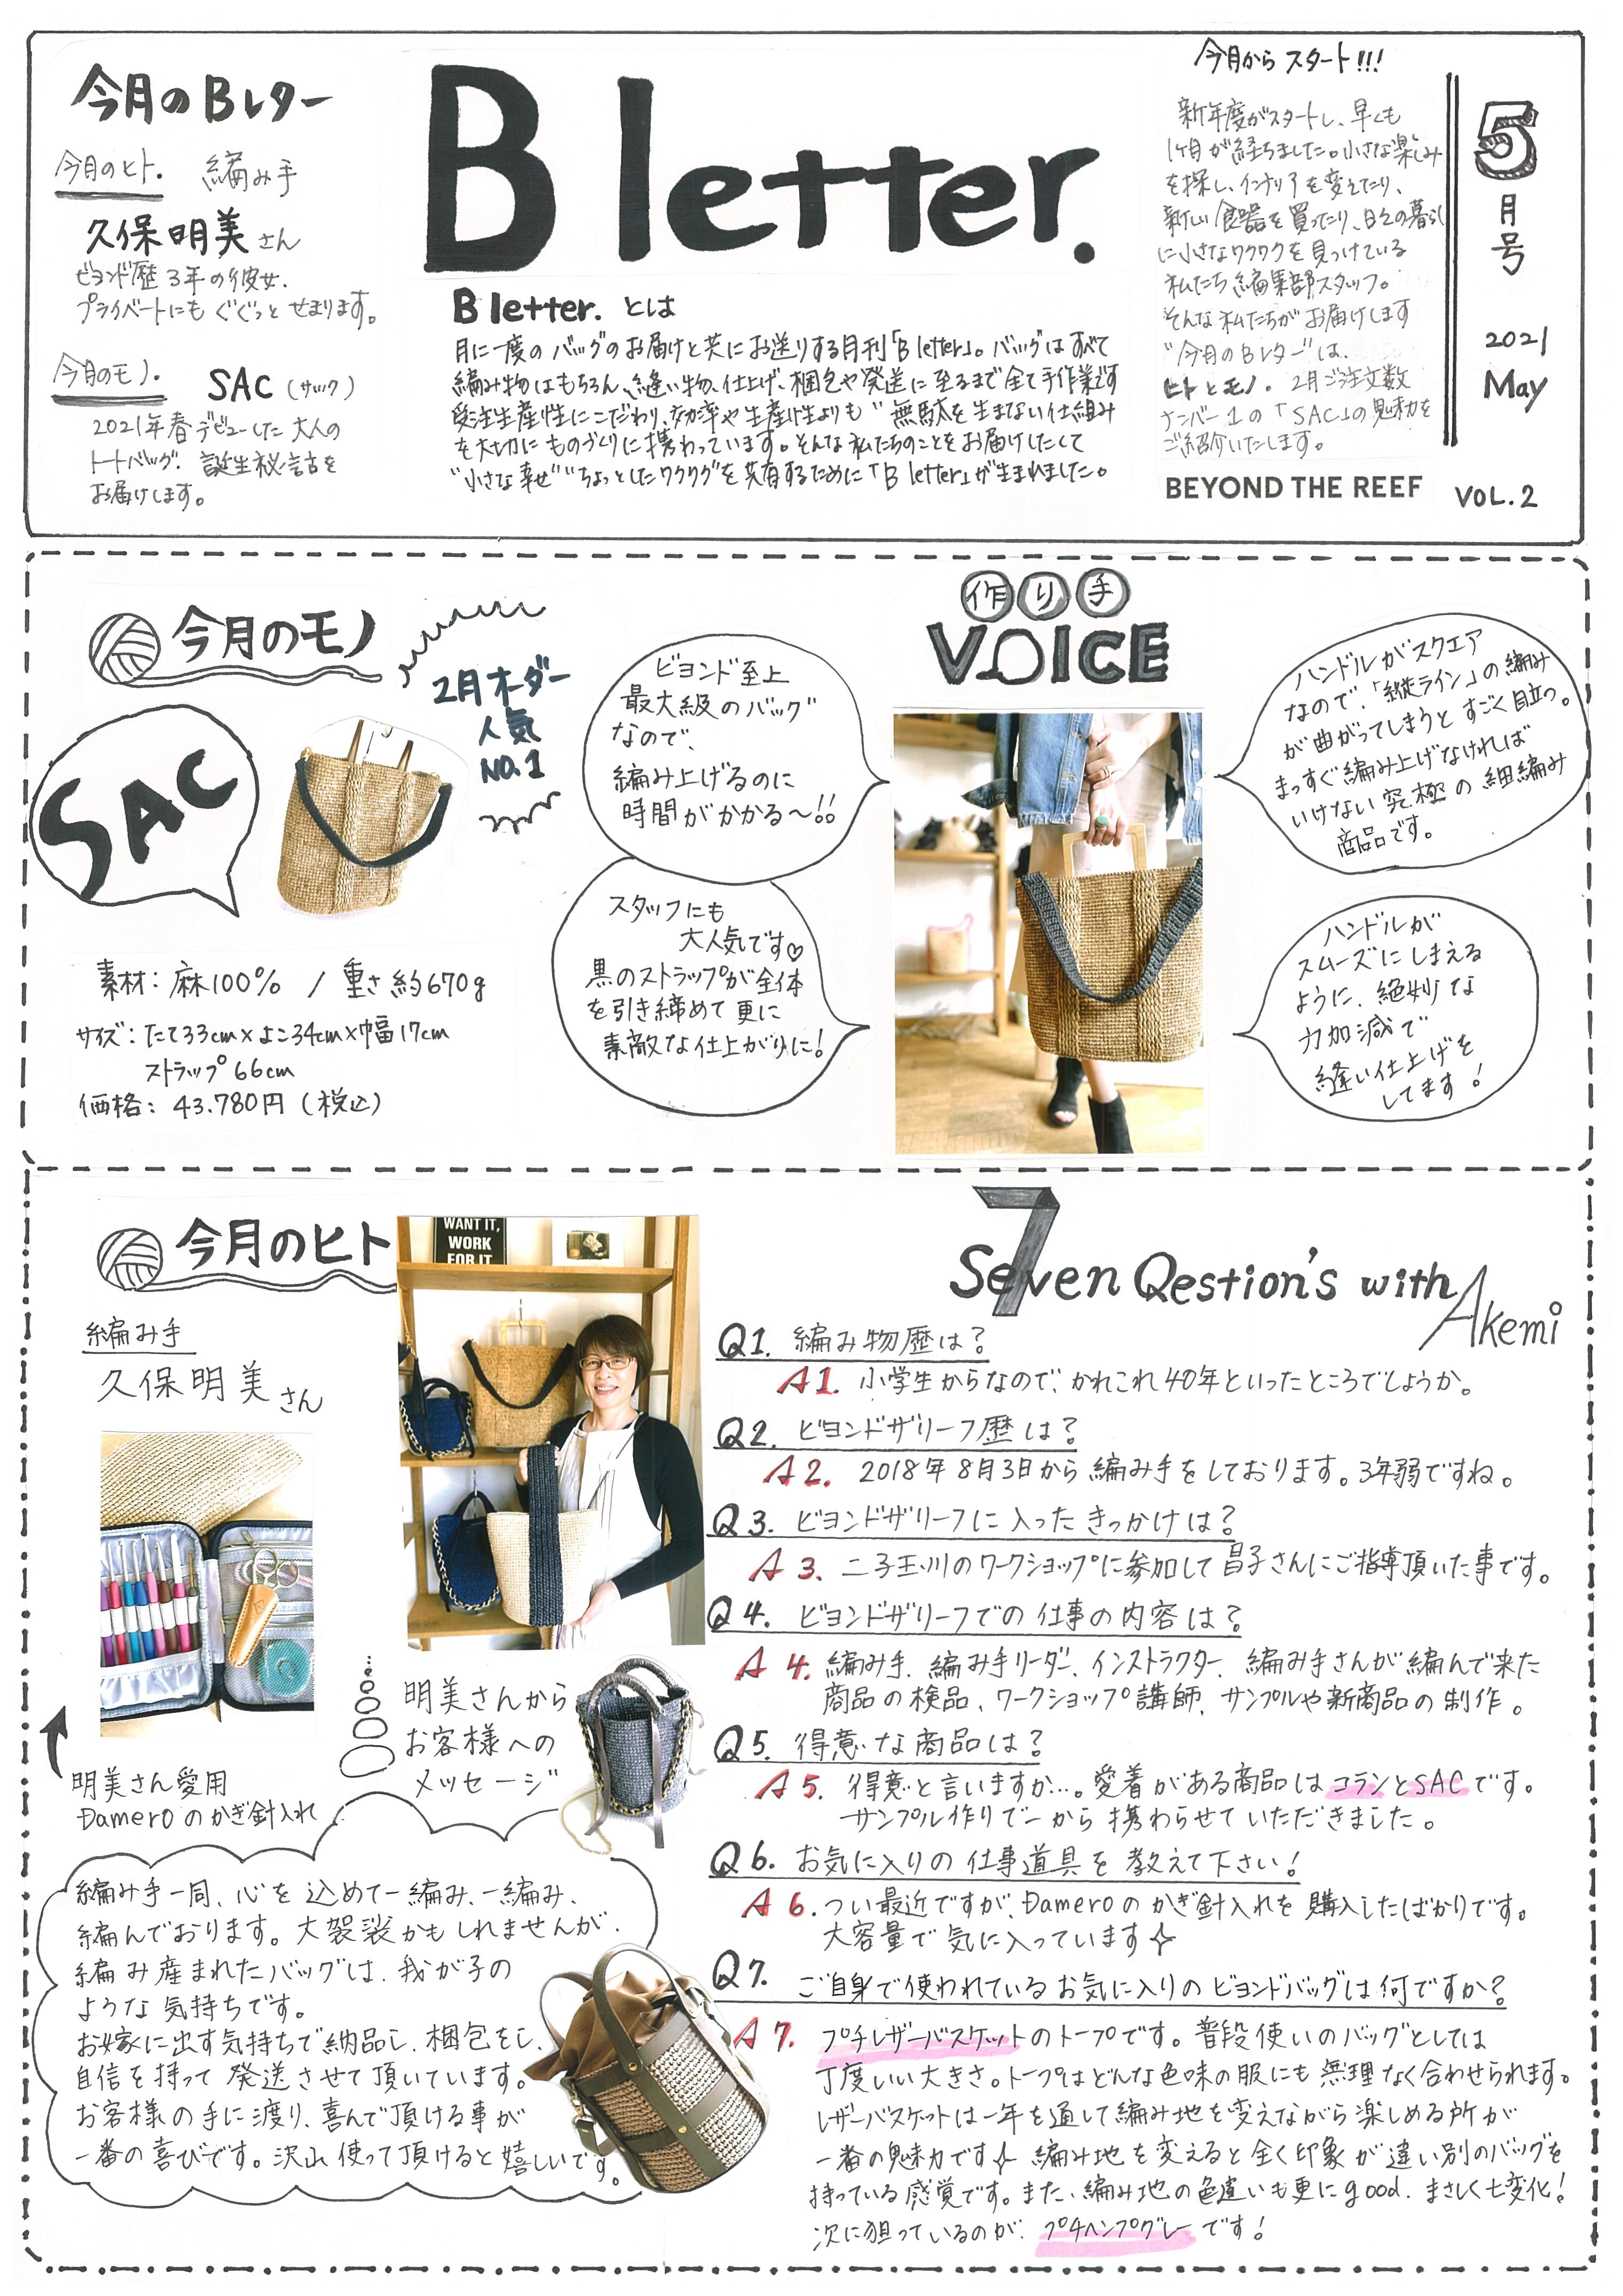 今月のBレター
今月のヒト. 編み手
久保明美さん
ビヨンド歴3年の彼女.
プライベートにもぐぐっとせまります。
今月のモノ. SAC(サック)
2021年春デビューした大人の
トートバッグ. 誕生秘話を
お届けします。
B letter.
B letter. とは
月に一度のバッグのお届けと共にお送りする月刊「B letter」。バッグはすべて
編み物はもちろん、縫い物、仕上げ、梱包や発送に至るまで全て手作業です
受注生産性にこだわり、効率や生産性よりも"無駄を生まない仕組み
を大切にものづくりに携わっています。そんな私たちのことをお届けしたくて
"小さな幸せ""ちょっとしたワクワク"を共有するために「B letter」が生まれました。
今月からスタート!!!
新年度がスタートし、早くも
1ヶ月が経ちました。小さな楽しみ
を探し、インテリアを変えたり、
新しい食器を買ったり、日々の暮らし
に小さなワクワクを見つけている
私たち編集部スタッフ。
そんな私たちがお届けします
"今月のBレター"は、
ヒトとモノ. 2月ご注文数
ナンバー1の「SAC」の魅力を
ご紹介いたします。
BEYOND THE REEF
5
月
号
2021
May
VOL.2
今月のモノ
2月オーダー
人気
NO.1
SAC
素材: 麻100% / 重さ約670g
サイズ: たて33cm×よこ34cm×巾幅17cm
ストラップ66cm
価格: 43.780円(税込)
ビヨンド至上
最大級のバッグ
なので、
編み上げるのに
時間がかかる〜!!
スタッフにも
大人気です♡
黒のストラップが全体
を引き締めて更に
素敵な仕上がりに!
作り手
VOICE
ハンドルがスクエア
なので、「縦ライン」の編み
が曲がってしまうとすごく目立つ。
まっすぐ編み上げなければ
いけない究極の細編み
商品です。
ハンドルが
スムーズにしまえる
ように、絶妙な
力加減で
縫い仕上げを
してます!
今月のヒト
編み手
久保明美さん
WANT IT,
WORK
FOR IT
明美さん愛用
Dameroのかぎ針入れ
明美さんから
お客様への
メッセージ
編み手一同、心を込めて一編み、一編み、
編んでおります。大袈裟かもしれませんが、
編み産まれたバッグは、我が子の
ような気持ちです。
お嫁に出す気持ちで納品し、梱包をし、
自信を持って発送させて頂いています。
お客様の手に渡り、喜んで頂ける事が
一番の喜びです。沢山使って頂けると嬉しいです。
7
Seven Qestion's with Akemi
Q1. 編み物歴は?
A1. 小学生からなので、かれこれ40年といったところでしょうか。
Q2. ビヨンドザリーフ歴は?
A2. 2018年8月3日から編み手をしております。3年弱ですね。
Q3. ビヨンドザリーフに入ったきっかけは?
A3. 二子玉川のワークショップに参加して昌子さんにご指導頂いた事です。
Q4. ビヨンドザリーフでの仕事の内容は?
A4. 編み手、編み手リーダー、インストラクター、編み手さんが編んで来た
商品の検品、ワークショップ講師、サンプルや新商品の制作。
Q5. 得意な商品は?
A5. 得意と言いますか…。愛着がある商品はコランとSACです。
サンプル作りで一から携わらせていただきました。
Q6. お気に入りの仕事道具を教えて下さい!
A6. つい最近ですが、Dameroのかぎ針入れを購入したばかりです。
大容量で気に入っています✧
Q7. ご自身で使われているお気に入りのビヨンドバッグは何ですか?
A7. プチレザーバスケットのトープです。普段使いのバッグとしては
丁度いい大きさ。トープはどんな色味の服にも無理なく合わせられます。
レザーバスケットは一年を通して編み地を変えながら楽しめる所が
一番の魅力です✧ 編み地を変えると全く印象が違い別のバッグを
持っている感覚です。また、編み地の色違いも更にgood. まさしく七変化!
次に狙っているのが、プチヘンプグレーです!